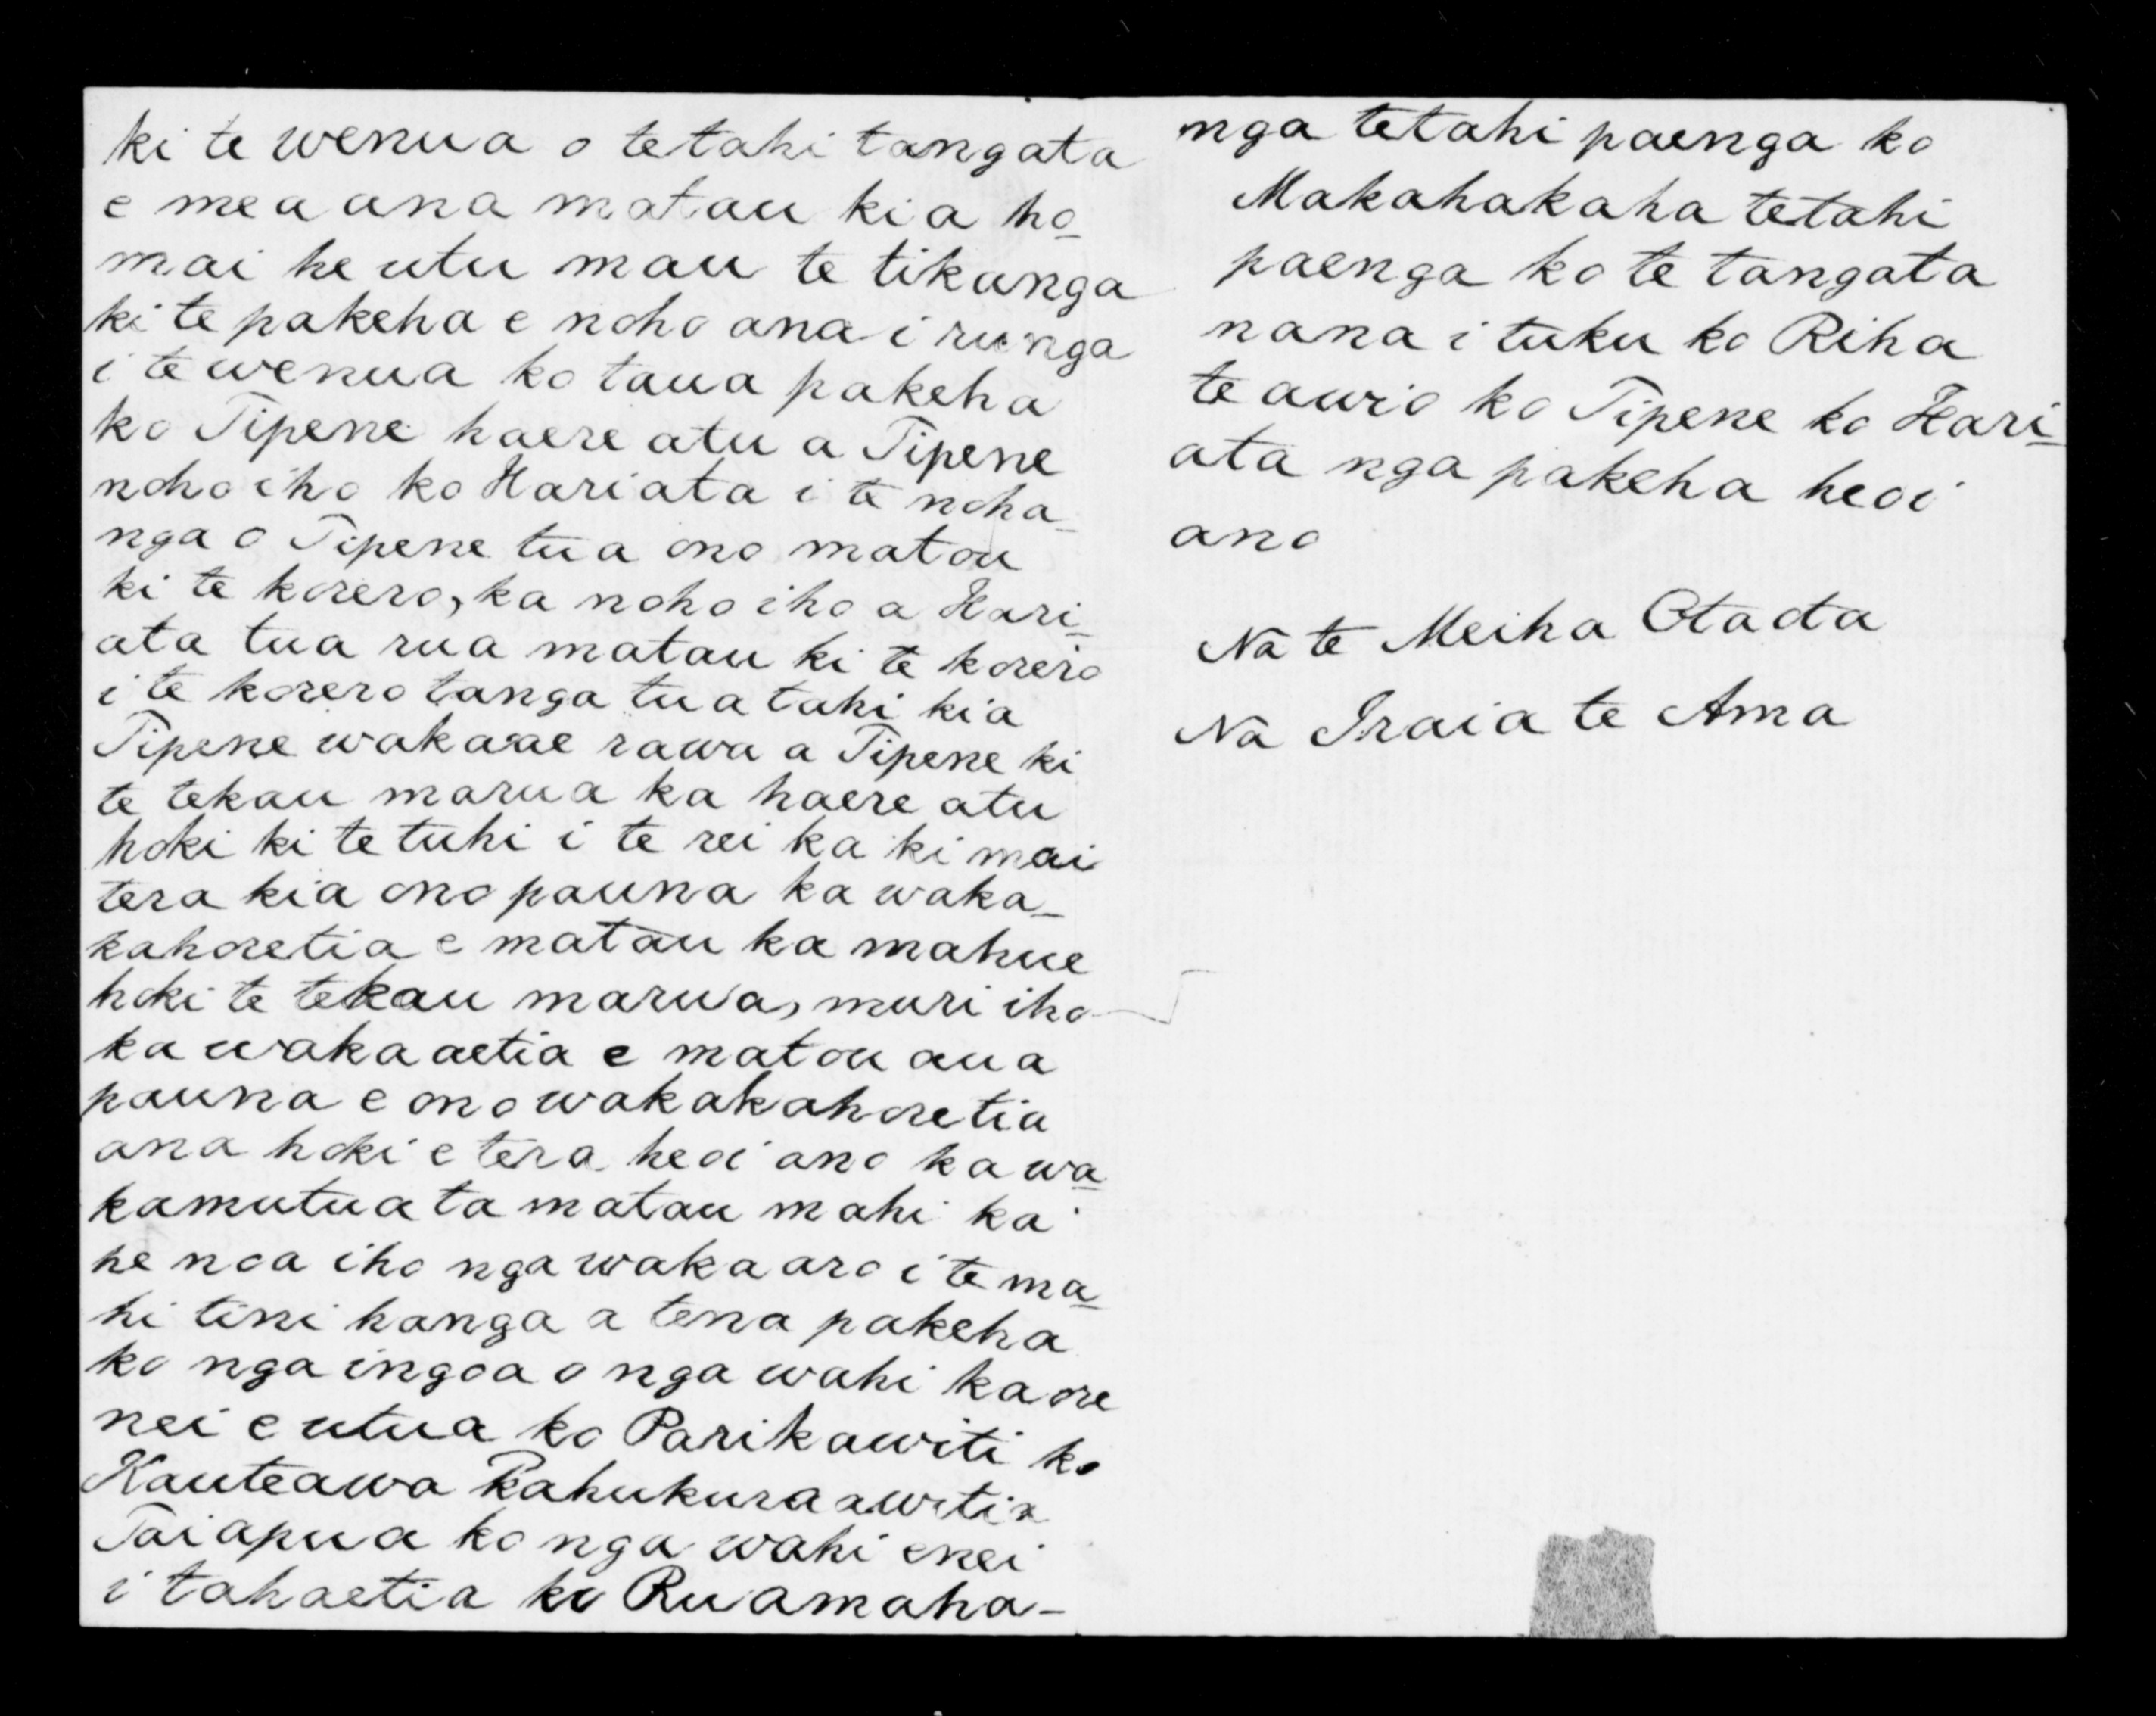 ki te wenua o tetahi tangata
e mea ana matau kia ho-
mai he utu mau te tikanga
ki te pakeha e noho ana i runga
i te wenua ko taua pakeha
ko Tipene haere atu a Tipene
noho iho ko Hariata i te noha-
nga o Tipene tua ono matou
ki te korero, ka noho iho a Hari-
ata tua rua matau ki te korero
i te korerotanga tuatahi kia
Tipene wakaaae rawa a Tipene ki
te tekau marua ka haere atu
hoki ki te tuhi i te rei ka ki mai
tera kia ono pauna ka waka-
kahoretia e matau ka mahue
hoki te tekau marua, muri iho
ka wakaaetia e matou aua
pauna e ono wakakahoretia
ana hoki e tera heoi ano ka wa-
kamutua ta matau mahi ka
he noa iho nga wakaaro i te ma-
hi tini hanga a tena pakeha
ko nga ingoa o nga wahi kaore
nei e utua ko Parikawiti ko
Kauteawa Kahukuraawitia
Taiapua ko nga wahi enei
i tahaetia ko Ruamaha-
nga tetahi paenga ko
Makahakaha tetahi
paenga ko te tangata
nana i tuku ko Riha
te awio ko Tipene ko Hari-
ata nga pakeha heoi
ano
Na te Meiha Otaota
Na Iraia te Ama